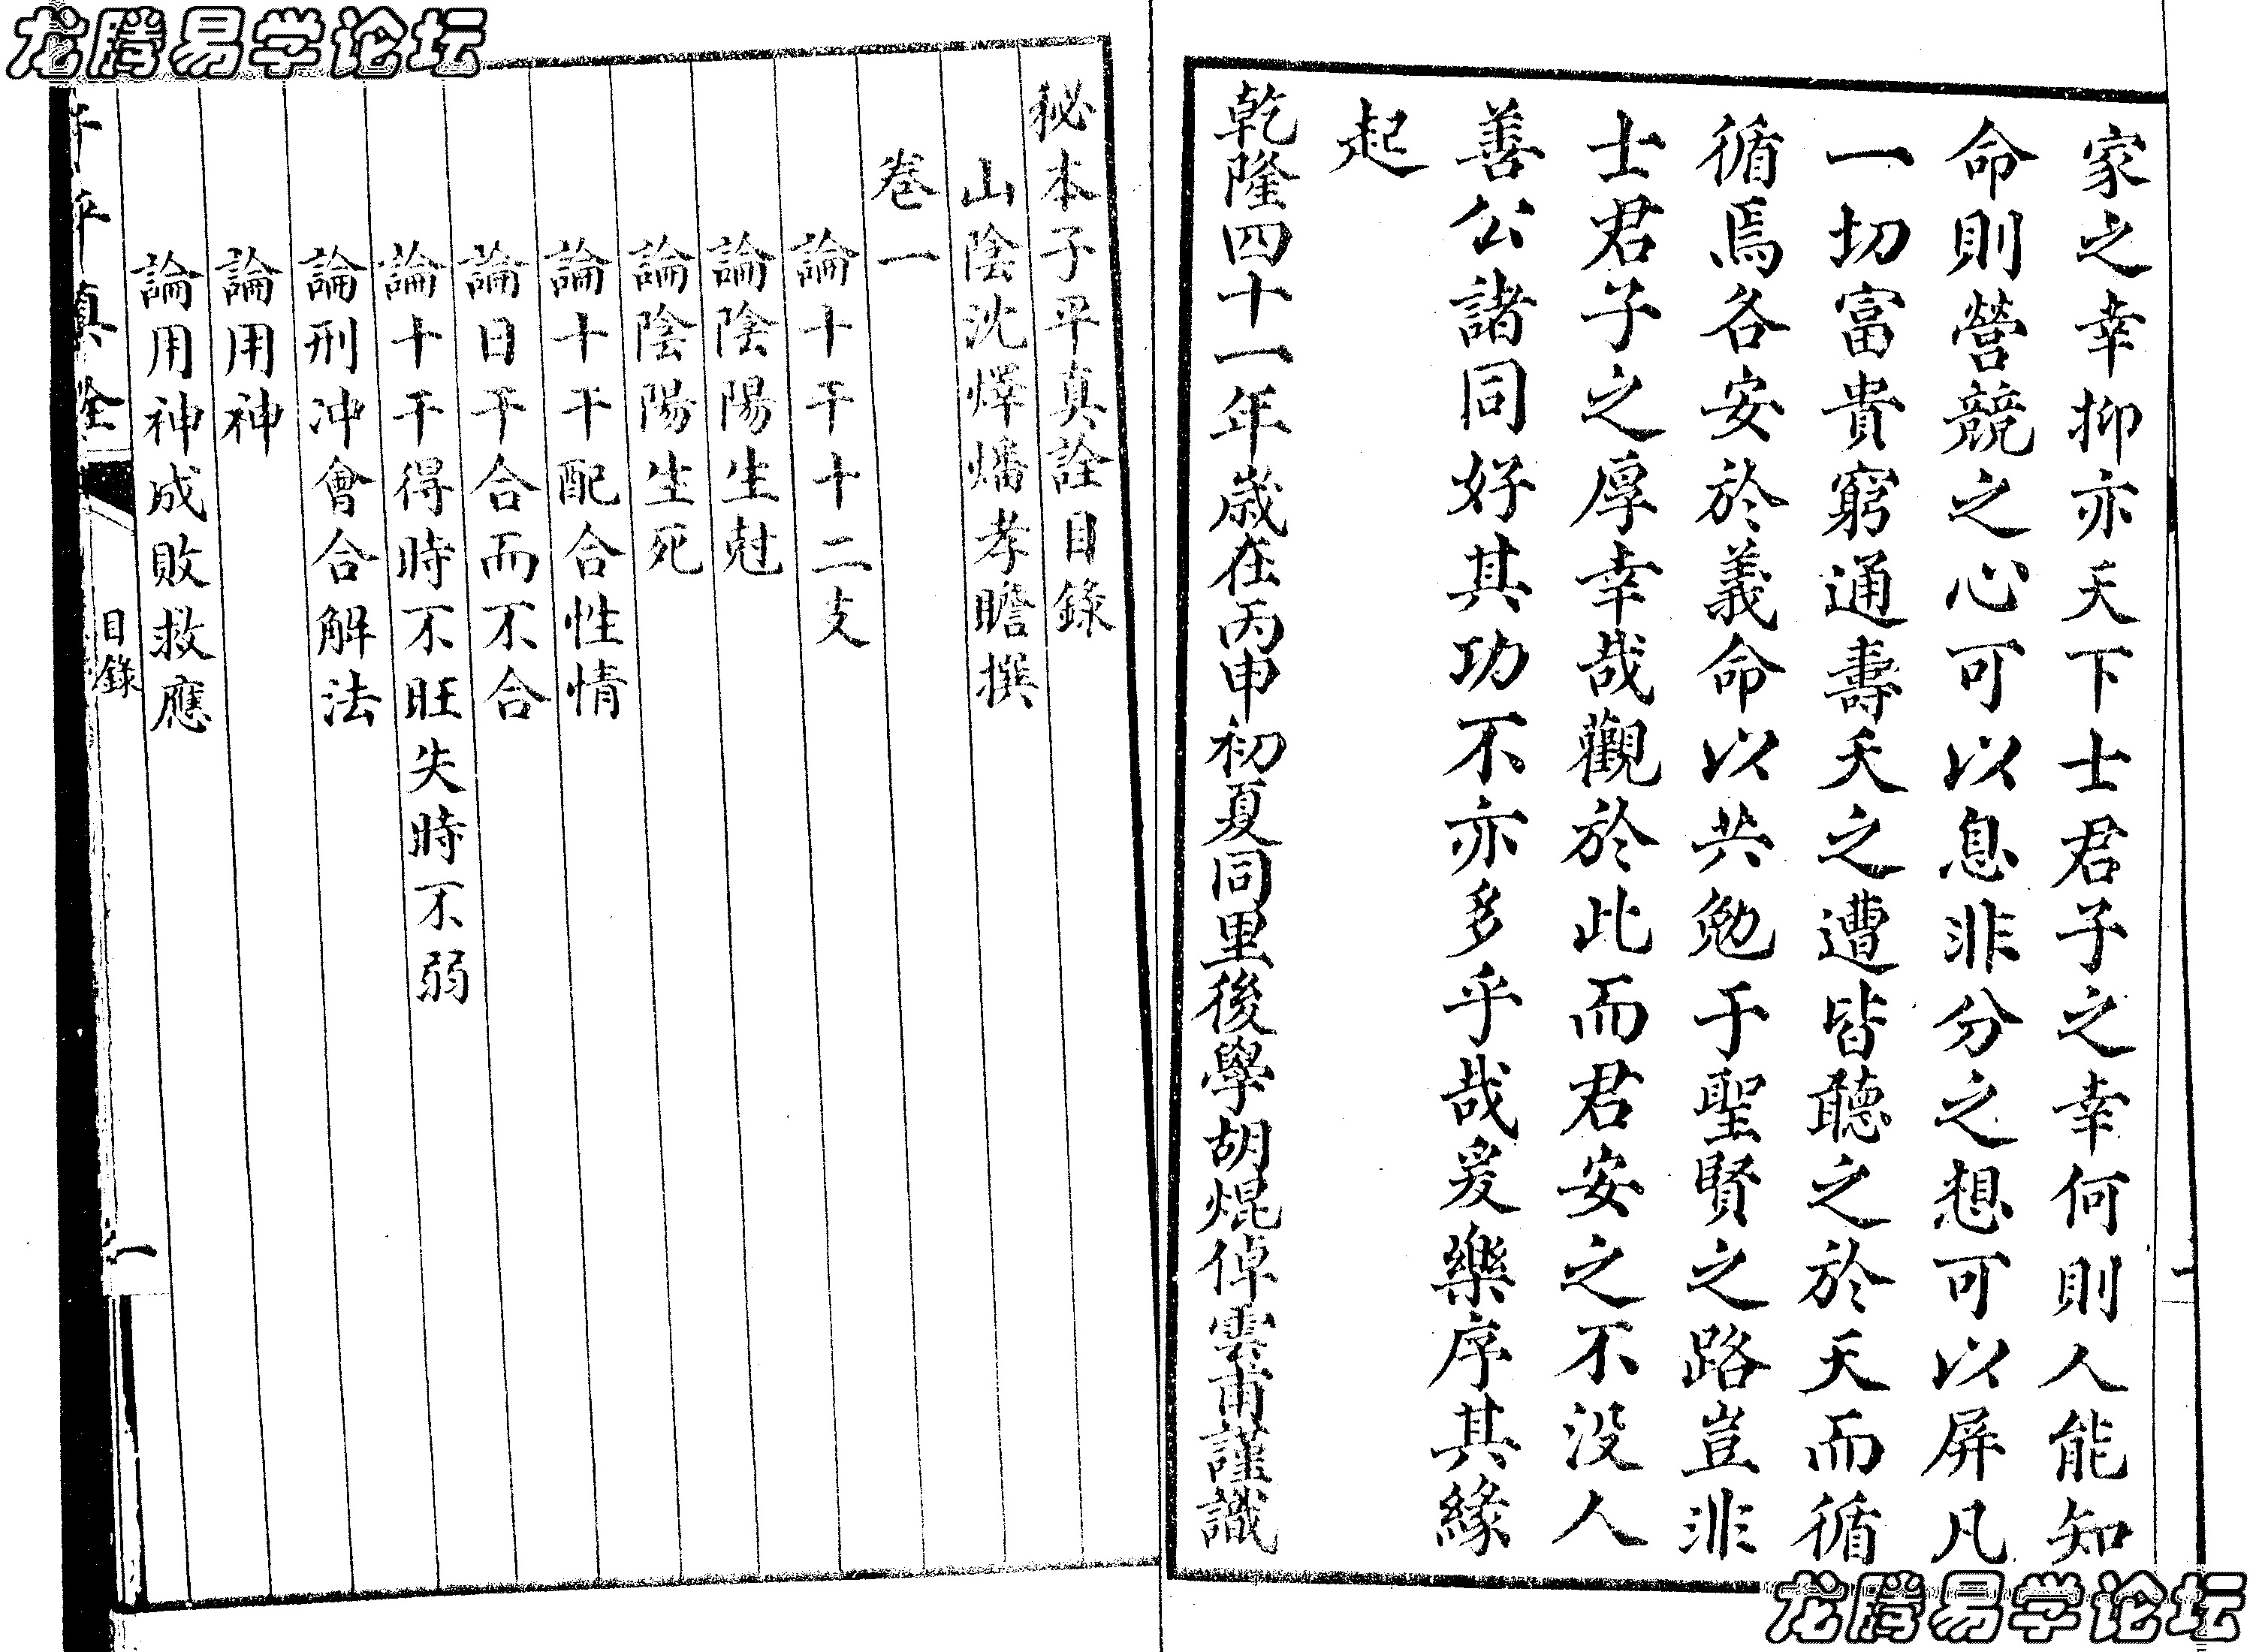 龙腾易学论坛
家之幸抑亦天下士君子之幸何則人能知
命則營競之心可以息非分之想可以屏凡
一切富貴窮通壽夭之遭皆聽之於天而循
循焉各安於義命以共勉于聖賢之路豈非
士君子之厚幸哉觀於此而君安之不没人
善公諸同好其功不亦多乎哉爰樂序其緣
起
乾隆四十一年歲在丙申初夏同里後學胡焜倬雲甫謹識
一
秘本子平真詮目錄
山陰沈燡燔孝瞻撰
卷一
論十干十二支
論陰陽生尅
論陰陽生死
論十干配合性情
論日干合而不合
論十干得時不旺失時不弱
論刑冲會合解法
論用神
論用神成敗救應
子平真詮
目錄
一
龙腾易学论坛